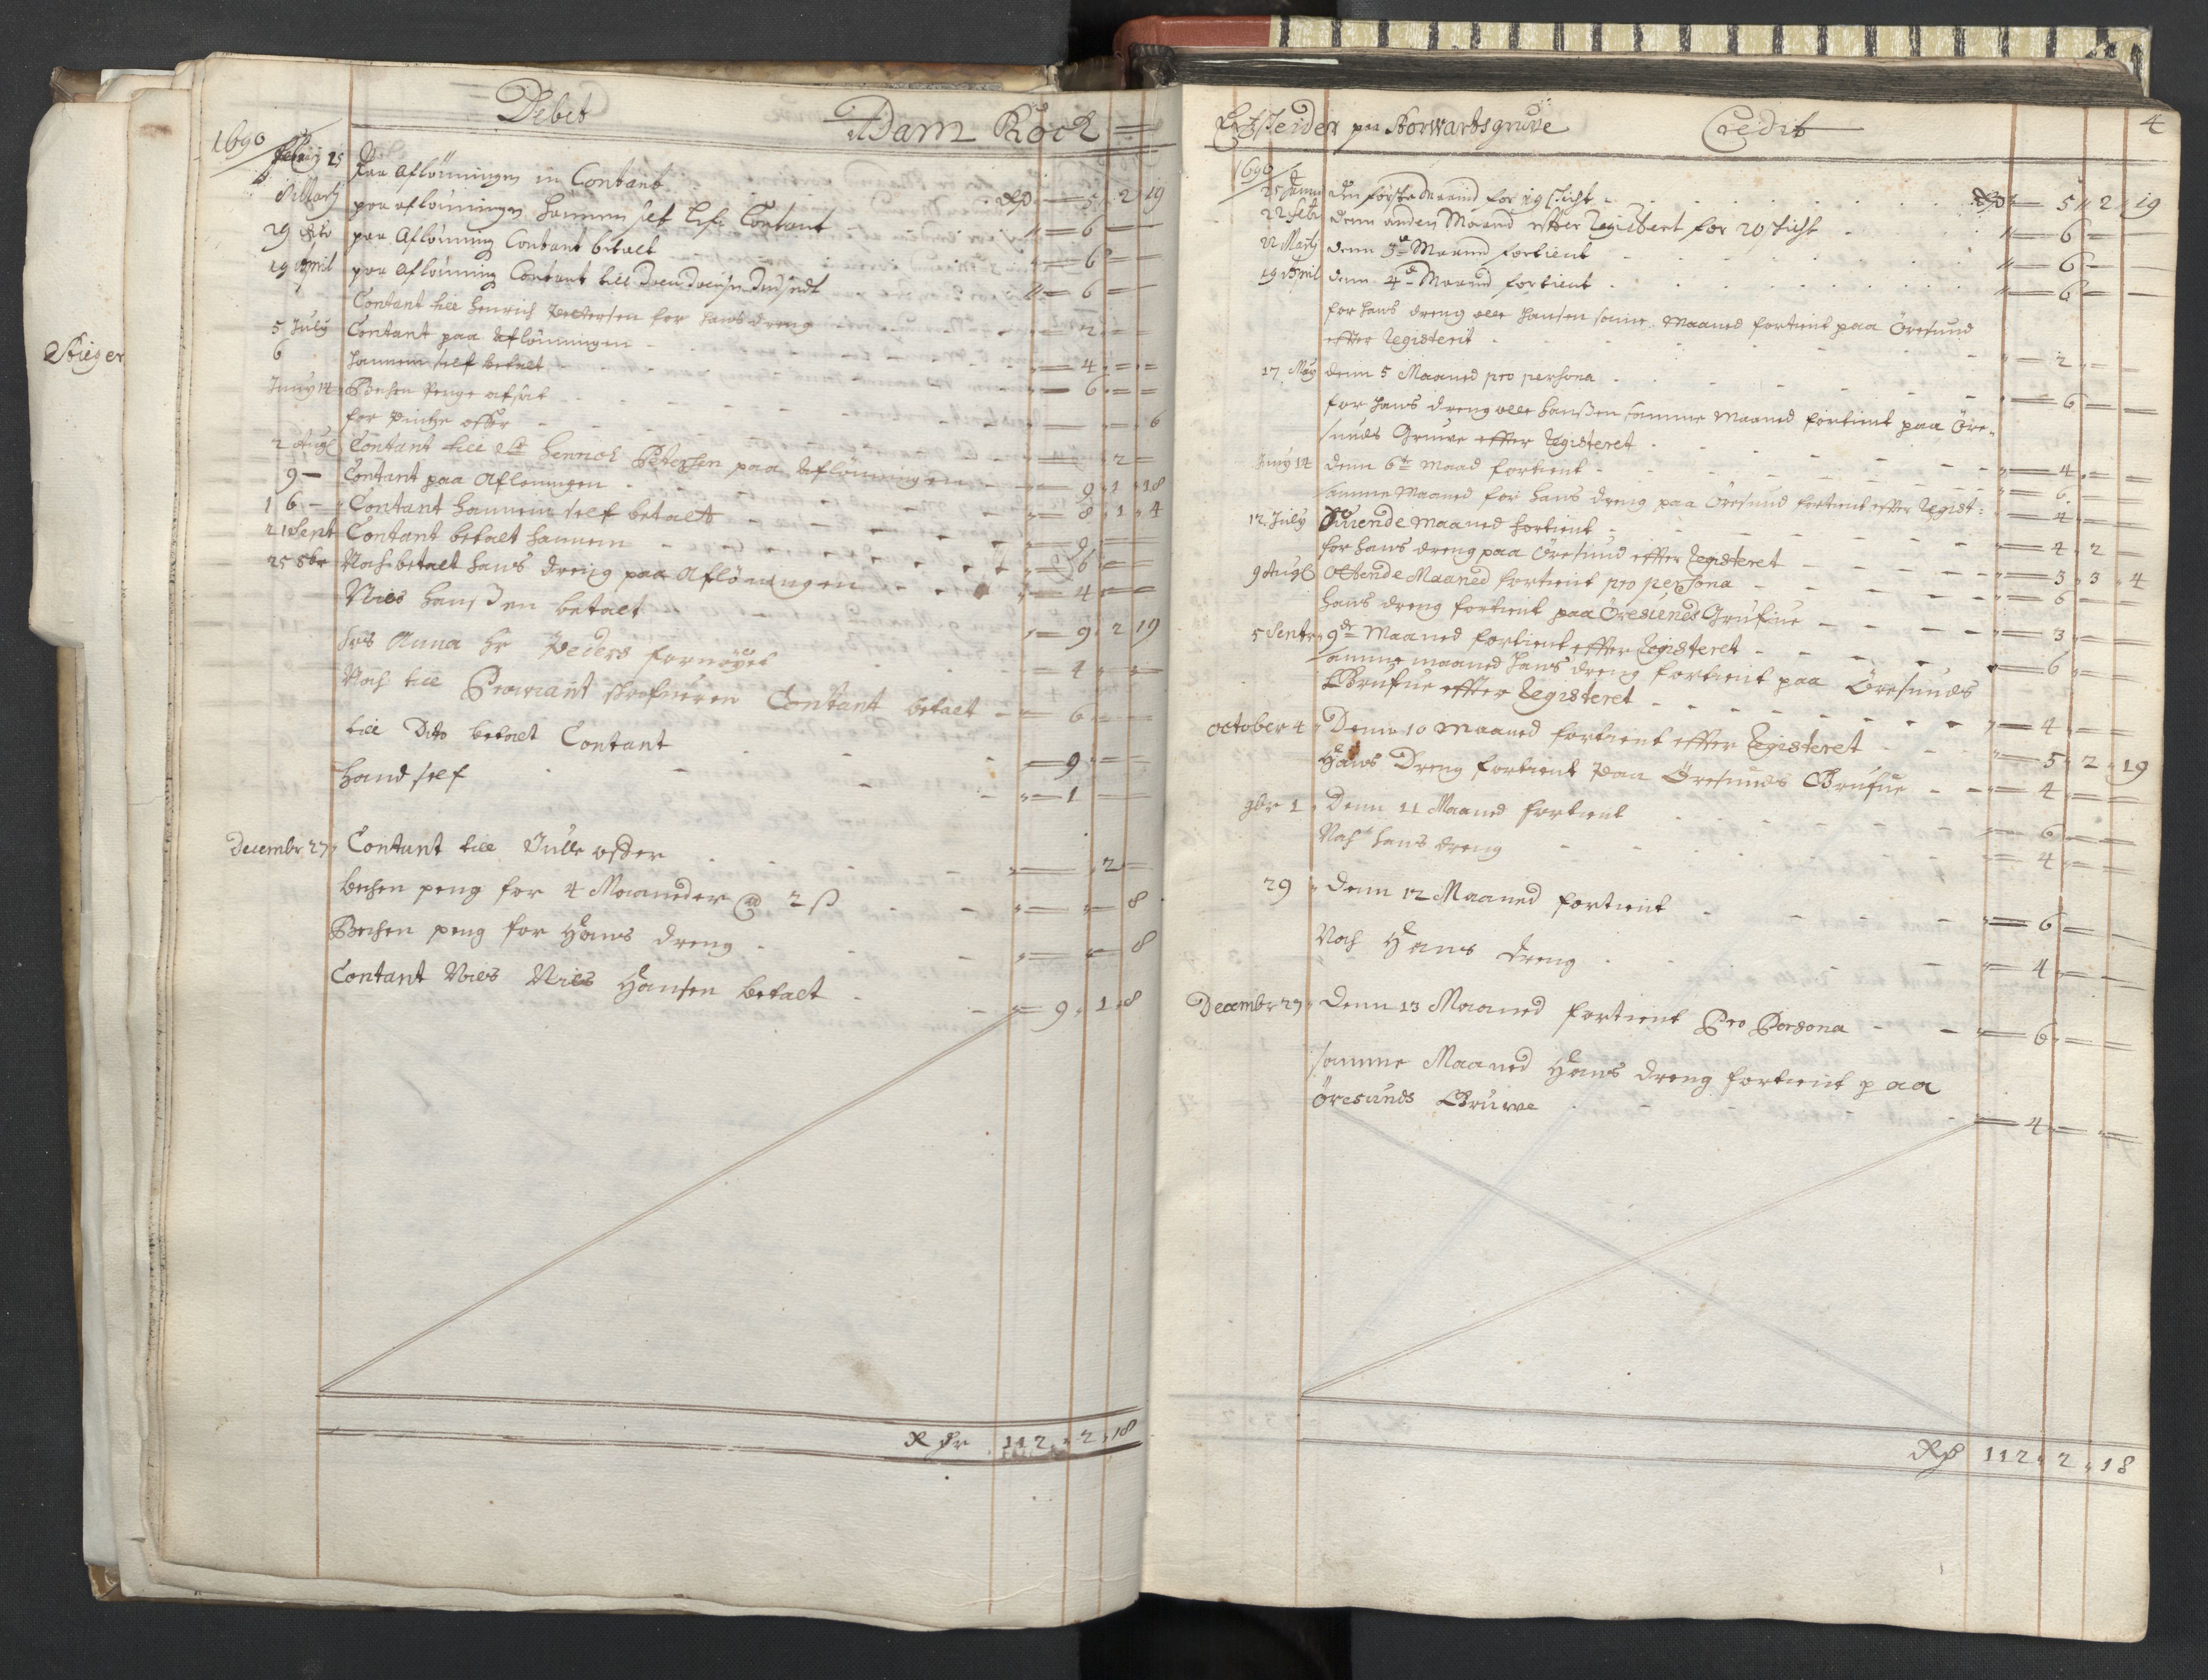 Stieger
Debit Adam Koch
1690
Febru 25 Paa Aflönningen in Contant dlr 5 2 19
Marty paa aflönningen hannem self Contant 6
29 dito paa Aflönning Contant betalt 6
19 April paa Aflönning Contant till 6
Contant till Henrich Pettersen for hans dreng 2
5 July Contant paa Aflönningen
6 hannem self betalt 4
Juny 14 Bechen Penge afsat 6
for Pintze offer 6
2 Aug Contant till Hennrich Petersen paa Aflönningen 2
9 Contant paa Aflönningen 9 1 18
16 Contant hannem self betalt 8 1 4
21 Sept Contant betalt hannem 9
25 8br Noch betalt hans dreng paa Aflönningen 6
Niels Hanßen betalt 4
Anna Hr Peders fornöyet 9 2 19
4
Noch till Proviant skrifveren Contant betalt 6
till Dito betalt Contant 9
hand self 1
Decembr 27 Contant till Julle offer 2
bechen peng for 4 Maaneder @ 2 ß 8
Bechen peng for Hans dreng 8
Contant Niels Hansen betalt 9 1 8
Rdr 112 2 18
paa Storwartsgruve Credit 4
1690
25 Janua den förste Maanid for 19 Sticht 5 2 19
22 Feb denn anden Maaned effter Registert for 20 Sticht 6
22 Marty denn 3 Maaned fortient 6
19 April denn 4 Maaned fortient 6
for hans dreng olle Hansen samme Maaned fortient paa Öresund
effter Registerit 2
17 May denn 5 Maaned pro persona 6
for hans dreng olle Hanßen samme Maaned fortient paa Öre-
sunds Gruve effter Registeret 4
Juny 14 denn 6te Maad fortient 6
samme Maaned for hans dreng paa Öresund fortient effter Regist: 4
12 July Siuende Maaned fortient 4 2
for hans dreng paa Öresund effter Registeret 3 3 4
9 Aug Ottende Maaned fortient pro persona 6
hans dreng fortient paa Öresunds Grufue 3
5 Septr 9de Maaned fortient effter Registeret 6
samme maaned hans dreng fortient paa Öresunds
Grufue effter Registeret 4
October 4 Denn 10 Maaned fortient effter Registeret 5 2 19
Hans Dreng fortient Paa Öresunds Grufue 4
9br 1 Denn 11 Maaned fortient 6
Noch hans dreng 4
29 Denn 12 Maaned fortient 6
Noch Hans dreng 4
Decembr 27 Denn 13 Maaned fortient Pro Persona 6
samme Maaned Hans dreng fortient paa
Öresunds Gruwe 4
Rdr 112 2 18